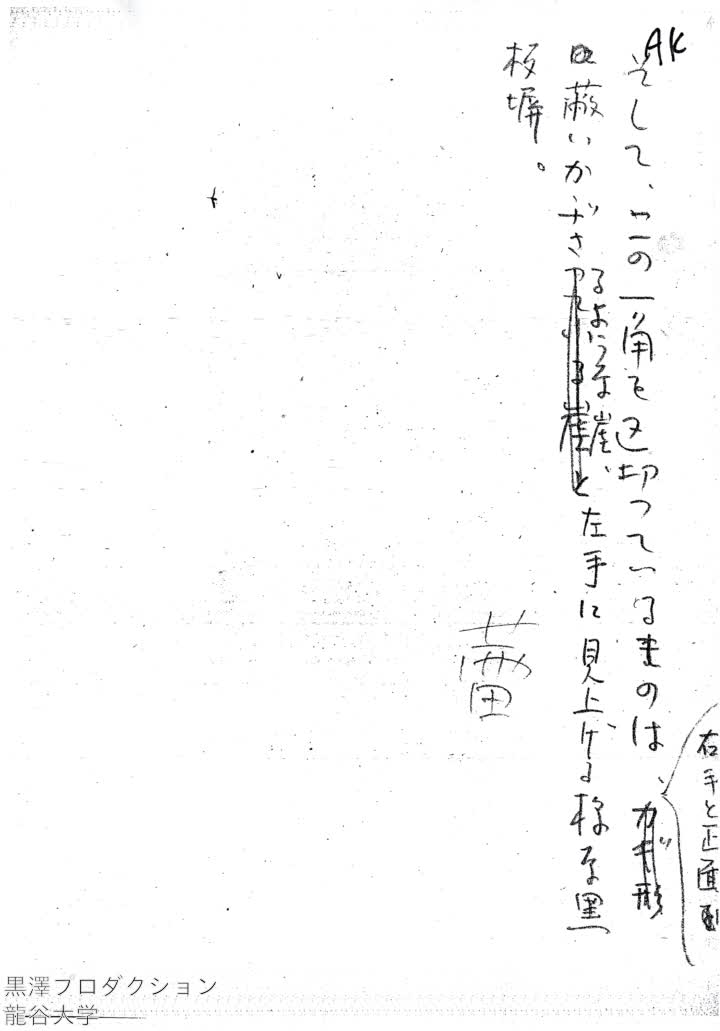 AK
そして、この一角を区切っているものは、カギ形
右手と正面
に蔽いかぶさるような崖、と左手に見上げる様な黒
板塀。
黒澤プロダクション
龍谷大学